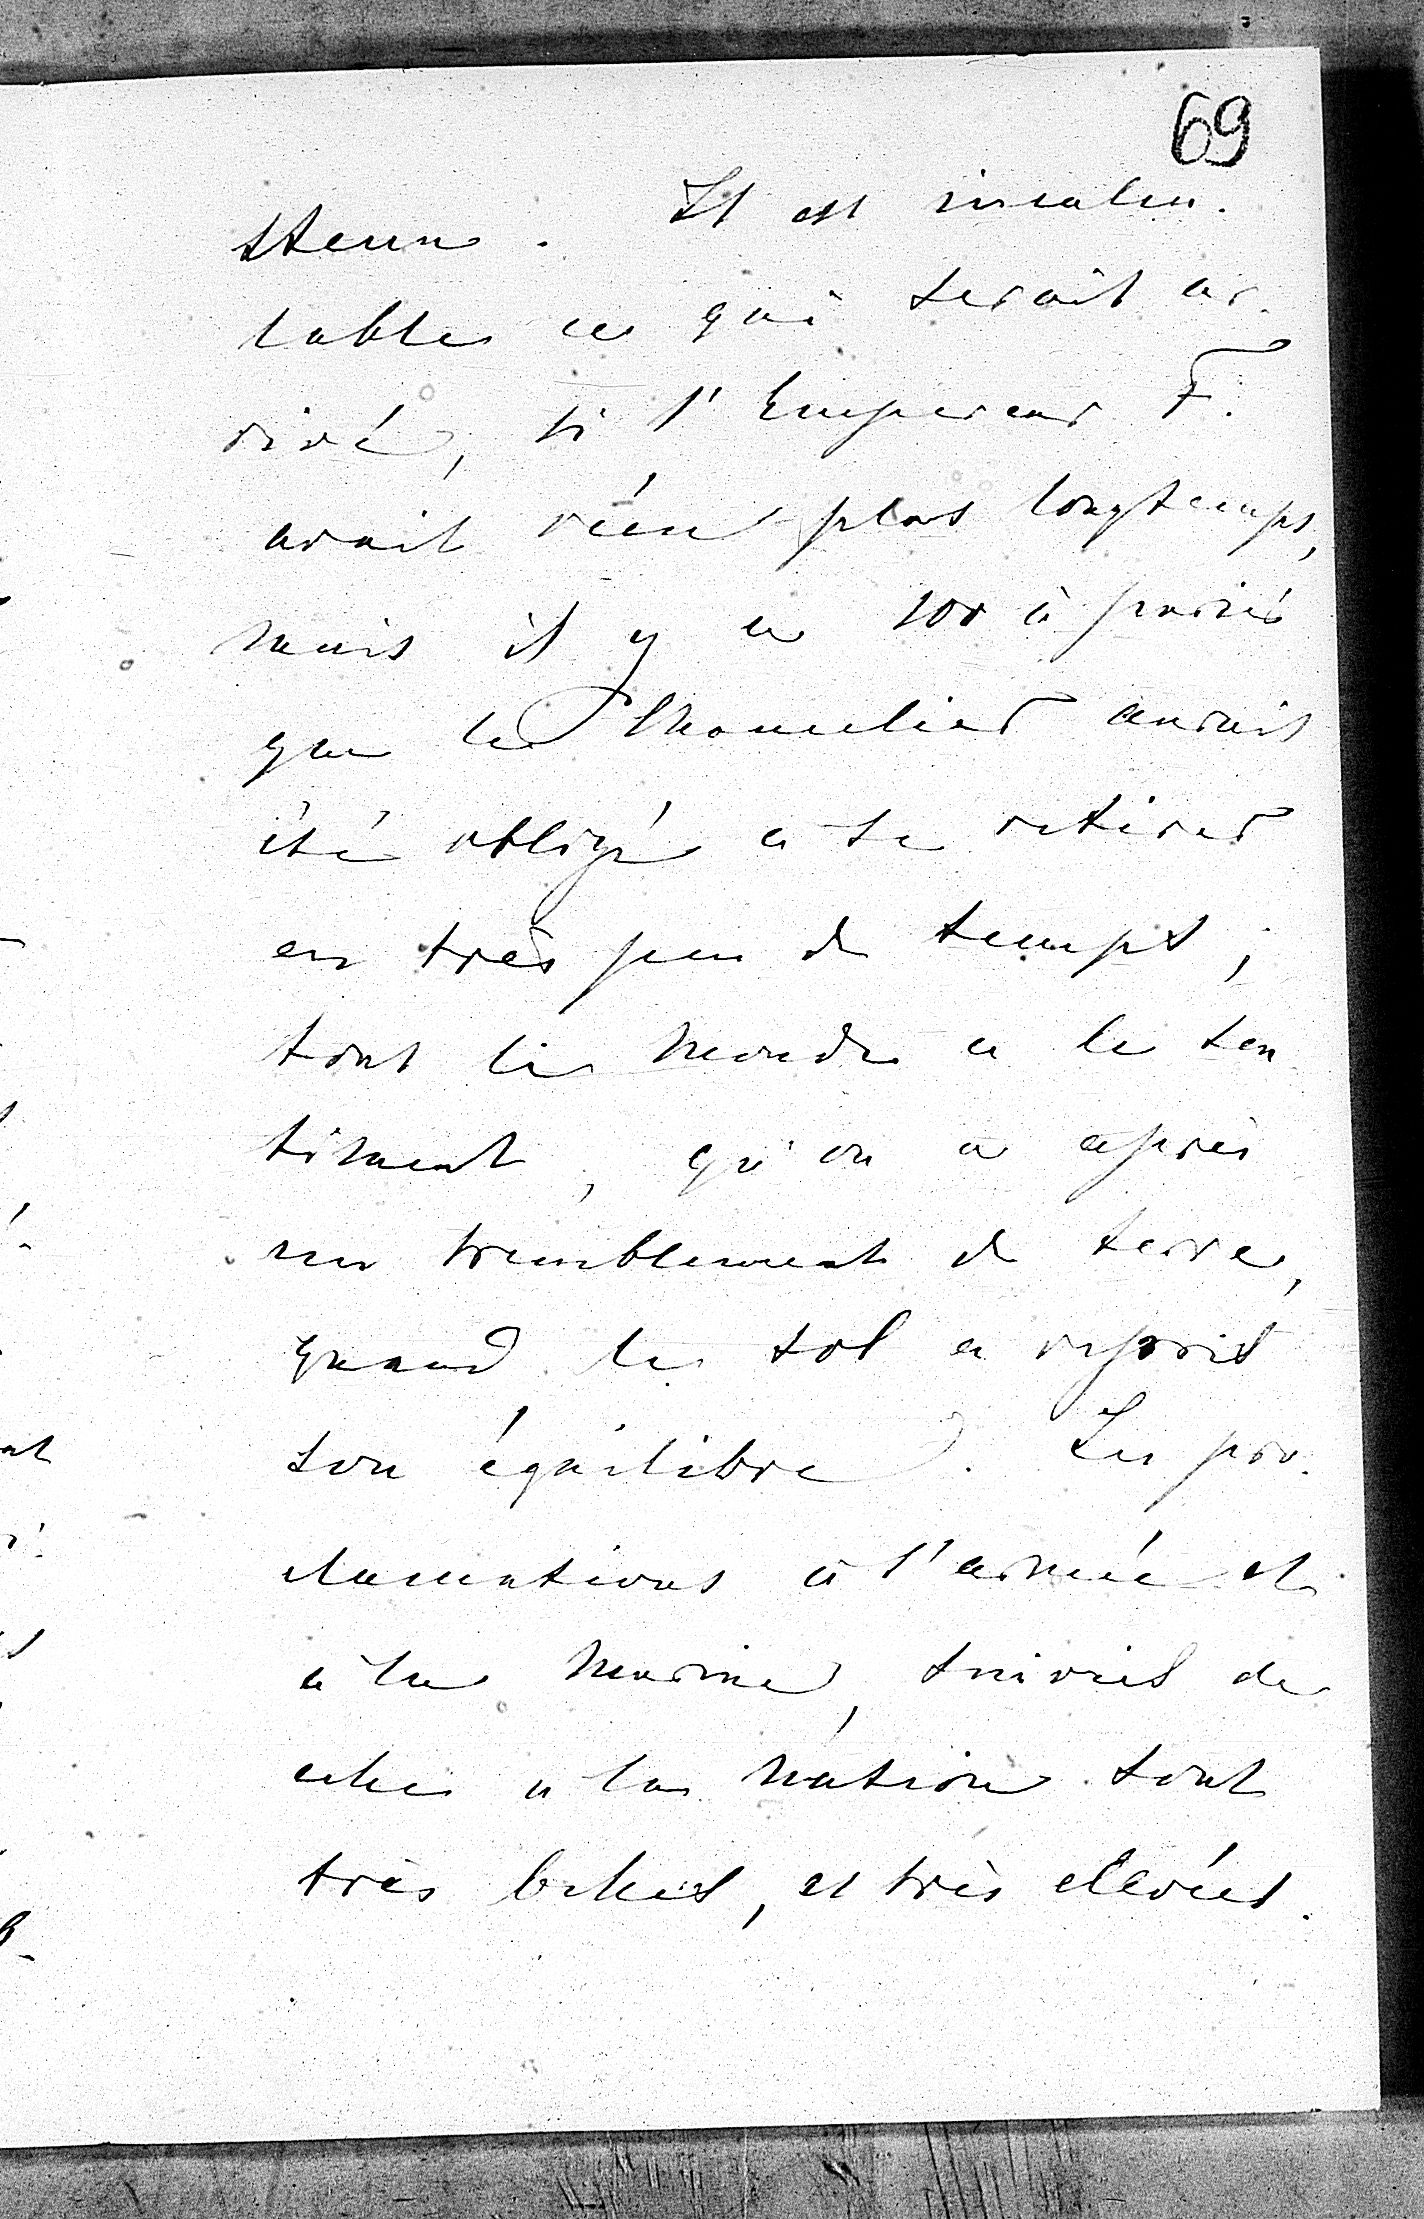 69
Il est incalcu-
lable ce qui serait ar-
rivé, si l'Empereur F.
avait vécu plus longtemps,
mais il y a 100 à parier
que le Chancelier aurait
été obligé à se retirer
en très peu de temps ;
tout le monde a le sen
timent, qu'on a après
un tremblement de terre,
quand le sol a repris
son équilibre. Les pro-
clamations à l'armée et
à la marine, suivies de
celle à la nation sont
très belles, et très élevées.